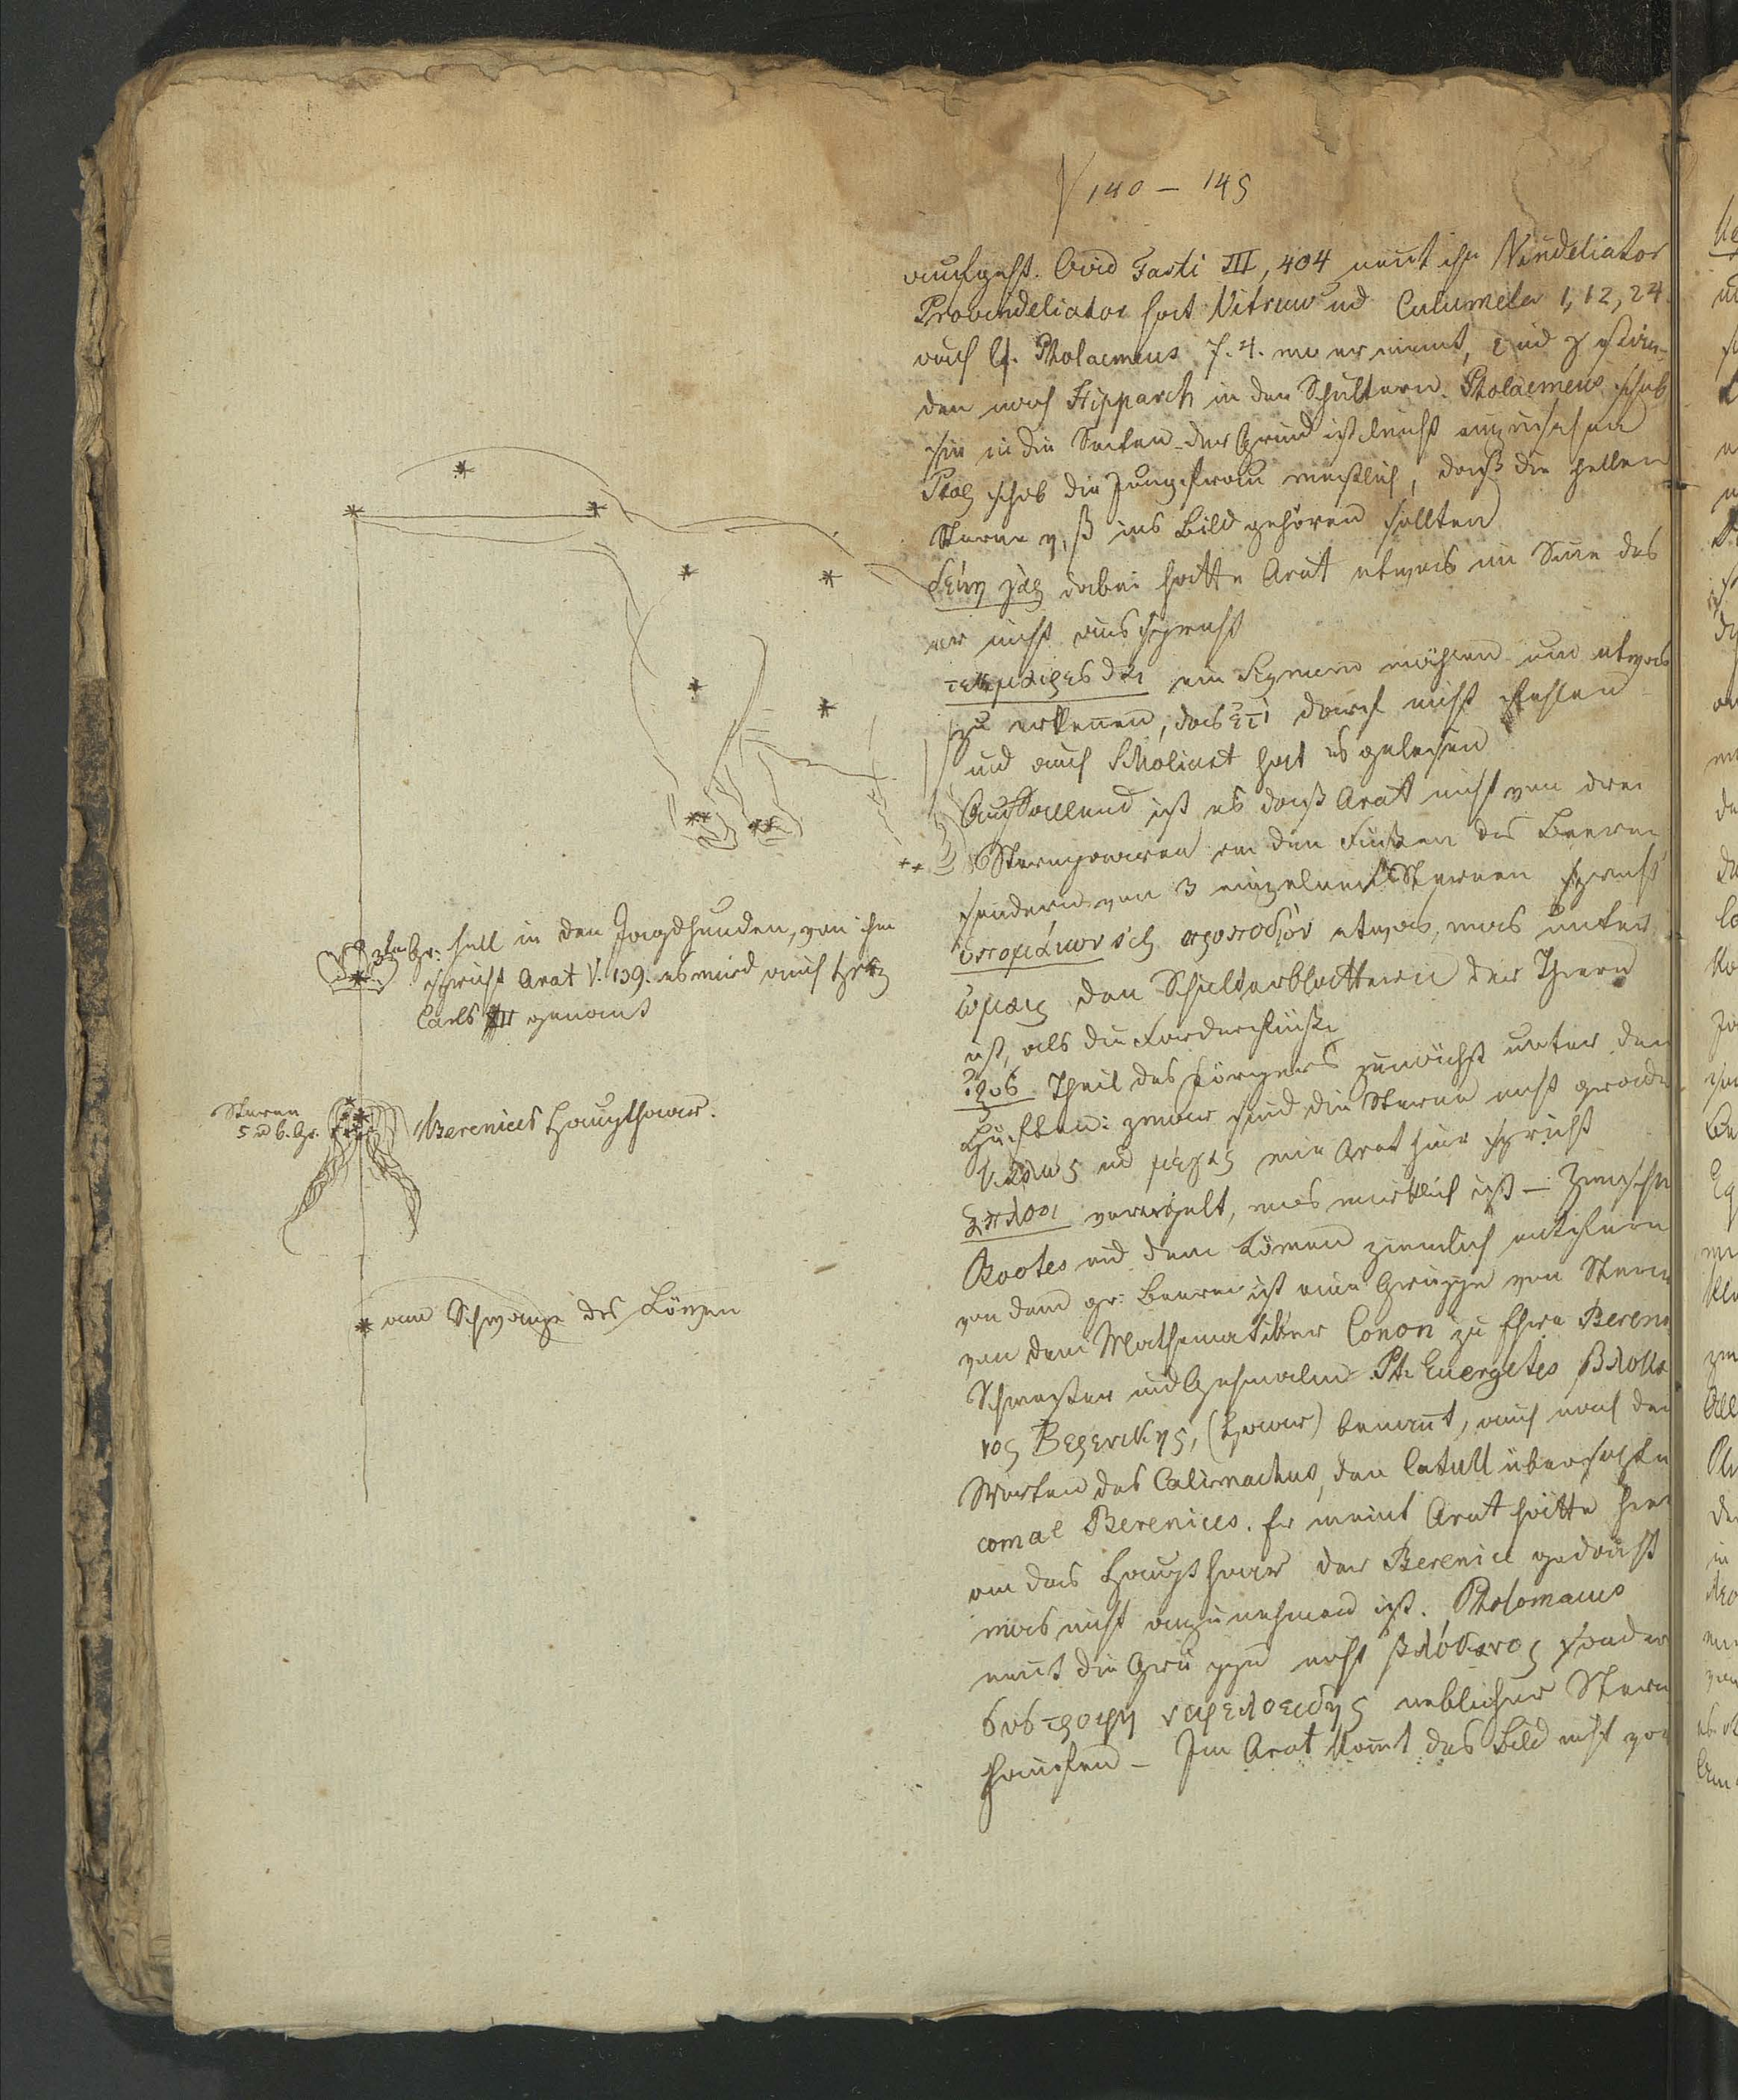 V 140 – 145
aufgeht. Ovid Fasti III, 404 nent ihn Vindeliator
Provindeliator hat Vitruv und Columela 1, 12, 24.
auch cf. Ptolaemeus 7. 4. wo er meint, ι und γ stün-
den nach Hipparch in den Schultern. Ptolaemeus schob
sie in die Seiten – der Grund ist leicht einzusehen
Ptol schob die Jungfrau westlich, daß die hellen
Sterne η, β ins Bild gehören sollten
δεινὴ γὰρ dabei hatte Arat etwas im Sinne das
er nicht ausspricht
τεκμαιρεσθαι ein Zeichen um etwas
zu erkennen, das ἐπὶ darf nicht fehlen
und auch Scholiast hat es gelesen
Auffallend ist es daß Arat nicht von drei
Sternpaaren an den Füßen des Baeren
sondern von 3 einzelnen Sternen spricht
ὑπωμαίων προποδων etwas, was unter
ωμοις den Schulterblättern der Thiere
ist, als die Forderfüße
Theil des Körpers zunächst unter den
Hüften: zwar sind die Sterne nicht grade
καλος und μεγας wie Arat hier spricht
ἁπλοοι vereinzelt, was wirklich ist – Zwischen
Bootes und dem Löwen ziemlich entfern
von dem gr: Baeren ist eine Gruppe von Stern
von dem Mathematiker Conon zu Ehre Bereni
Schwester und Gemahlin Pt. Euergetes βλοκα
νος Βερενικης, (Haar) benannt, auch nach den
Worten des Calimachus, den Catull übersetzte
comae Berenices. Er meint Arat hätte hier
an das Haupthaar der Berenice gedacht
was nicht anzunehmen ist. Ptolomaeus
nent die Gruppe nicht βλόκανος sonder
συστροφη νεφελοειδης neblicher Stern
haufen – Im Arat komt das Bild nicht vor
3ter Gr: hell in den Jagdhunden, von ihm
spricht Arat V. 139. es wird auch Herz
Carls II genant
Sterne
5 u 6. Gr.
Berenices Haupthaar.
am Schwanze des Löwen